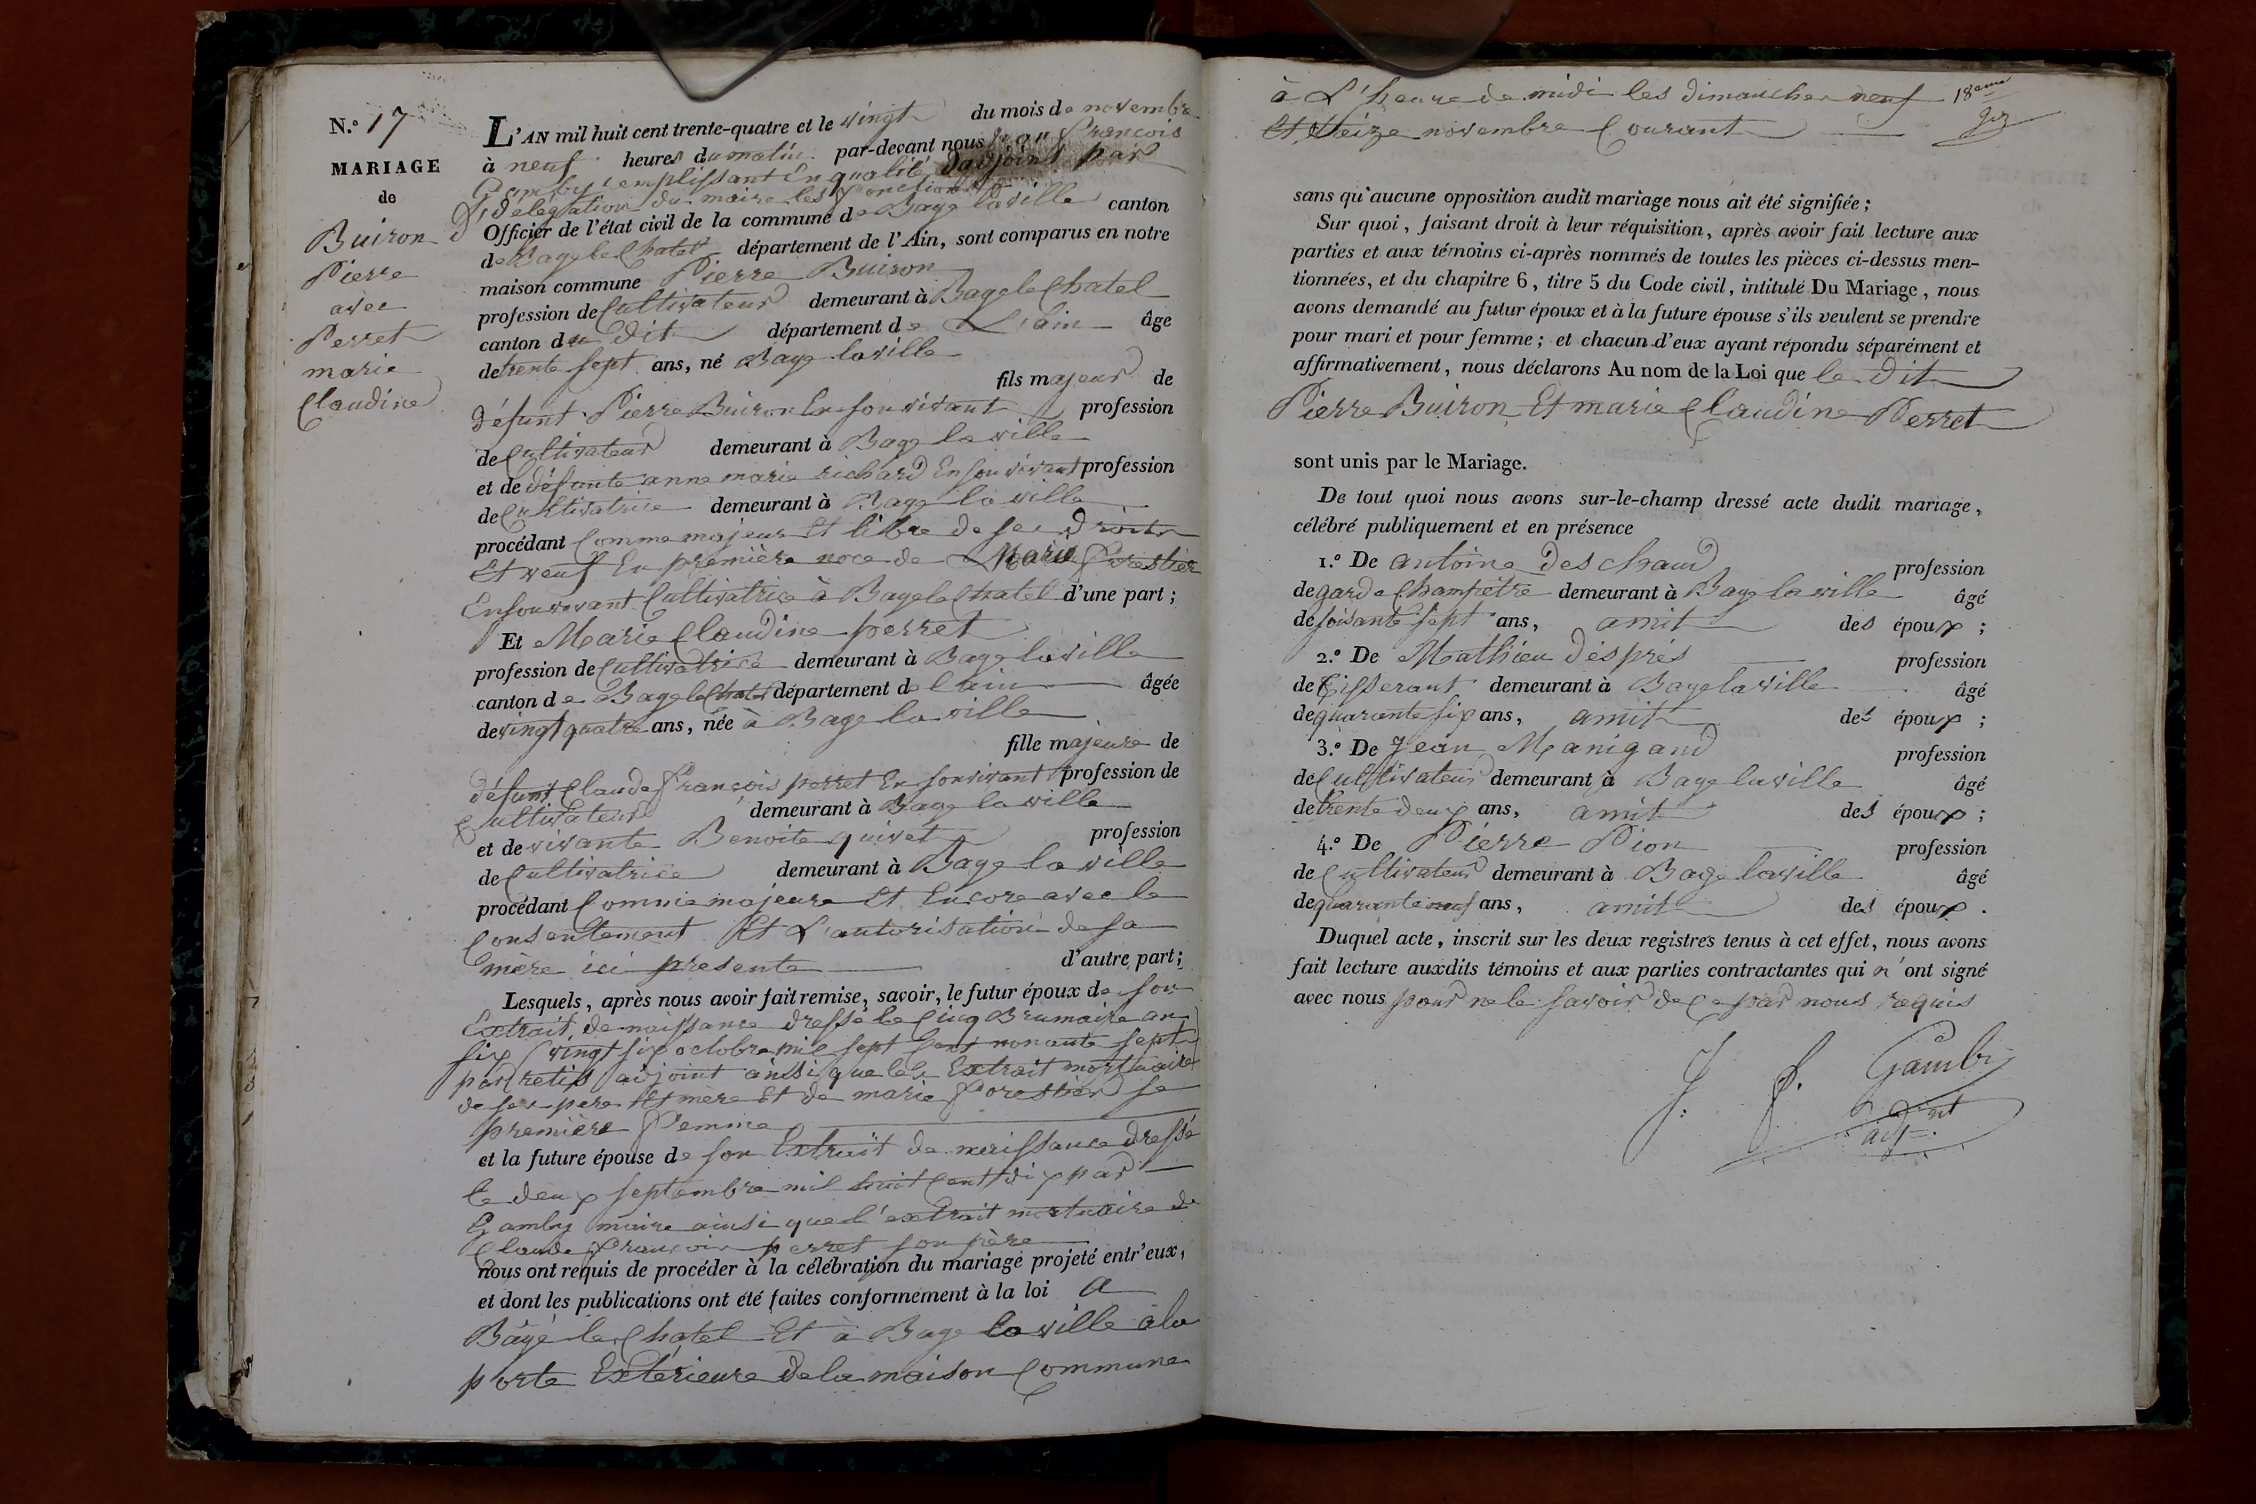 N.o 17
MARIAGE
de
Buiron
Pierre
avec
Perret
marie
Claudine
L'AN mil huit cent trente-quatre et le vingt du mois de novembre
à neuf heures du matin par-devant nous jean françois
Gamby remplissant en qualité d'adjoint par
délégation du maire les fonctions
d' Officier de l'état civil de la commune de Bage la ville canton
de Bage le Chatel département de l'Ain, sont comparus en notre
maison commune Pierre Buiron
profession de Cultivateur demeurant à Bage le Chatel
canton du dit département de L'ain âge
de trente sept ans, né Bage la ville
fils majeur de
défunt Pierre Buiron En son vivant profession
de Cultivateur demeurant à Bage la ville
et de défunte anne marie richard En son vivant profession
de Cultivatrice demeurant à Bage la ville
procédant Comme majeur Et libre de ses droits
Et veuf En première noce de Marie Forestier
En son vivant Cultivatrice à Bage le Chatel d'une part ;
Et Marie Claudine perret
profession de Cultivatrice demeurant à Bage la ville
canton de Bage le Chatel département de l'ain âgée
de vingt quatre ans, née à Bage la ville
fille majeure de
défunt Claude François perret En son vivant profession de
Cultivateur demeurant à Bage la ville
et de vivante Benoite quivet profession
de Cultivatrice demeurant à Bage la ville
procédant Comme majeure Et Encore avec le
Consentement Et L'autorisation de sa
mère ici presente d'autre part ;
Lesquels, après nous avoir fait remise, savoir, le futur époux de son
Extrait de naissance dressé le Cinq Brumaire an
six (vingt six octobre mil sept Cent nonante sept)
par retif adjoint ainsi que les Extrait mortuaire
de ses pere Et mère Et de marie Forestier sa
première Femme
et la future épouse de son Extrait de naissance dressé
le deux septembre mil huit Cent dix par
Gamby maire ainsi que l'extrait mortuaire de
Claude François perret son père
nous ont requis de procéder à la célébration du mariage projeté entr'eux,
et dont les publications ont été faites conformément à la loi a
Bâgé le Chatel Et à Bage la ville a la
porte Extérieure de la maison Commune
à L'heure de midi les dimanches neuf 18eme
Et Seize novembre Courant
sans qu'aucune opposition audit mariage nous ait été signifiée ;
Sur quoi, faisant droit à leur réquisition, après avoir fait lecture aux
parties et aux témoins ci-après nommés de toutes les pièces ci-dessus men-
tionnées, et du chapitre 6, titre 5 du Code civil, intitulé Du Mariage, nous
avons demandé au futur époux et à la future épouse s'ils veulent se prendre
pour mari et pour femme ; et chacun d'eux ayant répondu séparément et
affirmativement, nous déclarons Au nom de la Loi que le dit
Pierre Buiron Et marie Claudine Perret
sont unis par le Mariage.
De tout quoi nous avons sur-le-champ dressé acte dudit mariage,
célébré publiquement et en présence
1.o De antoine Des chaud profession
de garde Champêtre demeurant à Bage la ville âgé
de soisante sept ans, amit des époux ;
2.o De Mathieu després profession
de tisserant demeurant à Bage la ville âgé
de quarante six ans, amit des époux ;
3.o De Jean Manigand profession
de Cultivateur demeurant à Bage la ville âgé
de trente deux ans, amit des époux ;
4.o De Pierre Pion profession
de Cultivateur demeurant à Bage la ville âgé
de quarante neuf ans, amit des époux .
Duquel acte, inscrit sur les deux registres tenus à cet effet, nous avons
fait lecture auxdits témoins et aux parties contractantes qui n'ont signé
avec nous pour ne le savoir de Ce par nous requis
J. f. Gambi
adjoint